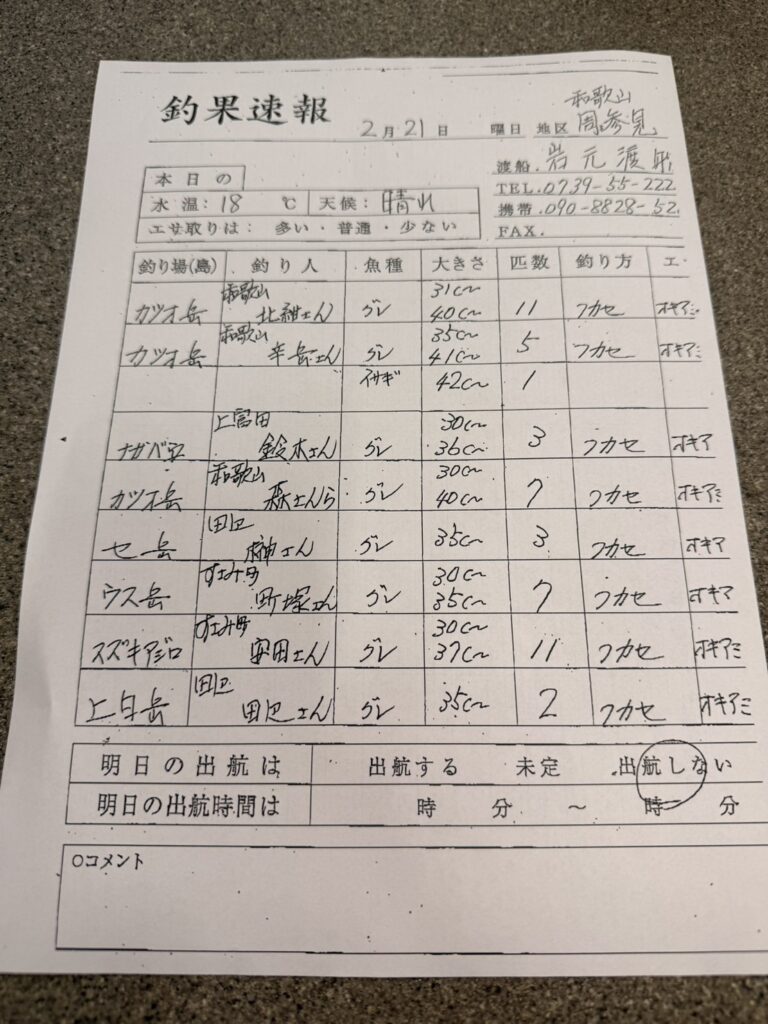 釣果速報
2月21日 曜日 地区 和歌山 周参見
渡船. 岩元渡船
TEL.0739-55-222
携帯.090-8828-52
FAX.
本日の
水温:18 ℃ 天候:晴れ
エサ取りは: 多い・普通・少ない
釣り場(島) 釣り人 魚種 大きさ 匹数 釣り方 エ
カツオ岳 和歌山 北紺さん グレ 31㎝~40㎝ 11 フカセ オキアミ
カツオ岳 和歌山 辛岳さん グレ 35㎝~41㎝ 5 フカセ オキアミ
イサギ 42㎝ 1
ナガベ 上富田 鈴木さん グレ 30㎝~36㎝ 3 フカセ オキア
カツオ岳 和歌山 森さんら グレ 30㎝~40㎝ 7 フカセ オキアミ
セ岳 田辺 榊さん グレ 35㎝ 3 フカセ オキア
ウス岳 すさみ町 町塚さん グレ 30㎝~35㎝ 7 フカセ オキア
スズキアジロ すさみ町 安田さん グレ 30㎝~37㎝ 11 フカセ オキアミ
上白岳 田辺 田辺さん グレ 35㎝ 2 フカセ オキアミ
明日の出航は 出航する 未定 出航しない
明日の出航時間は 時 分 ~ 時 分
○コメント